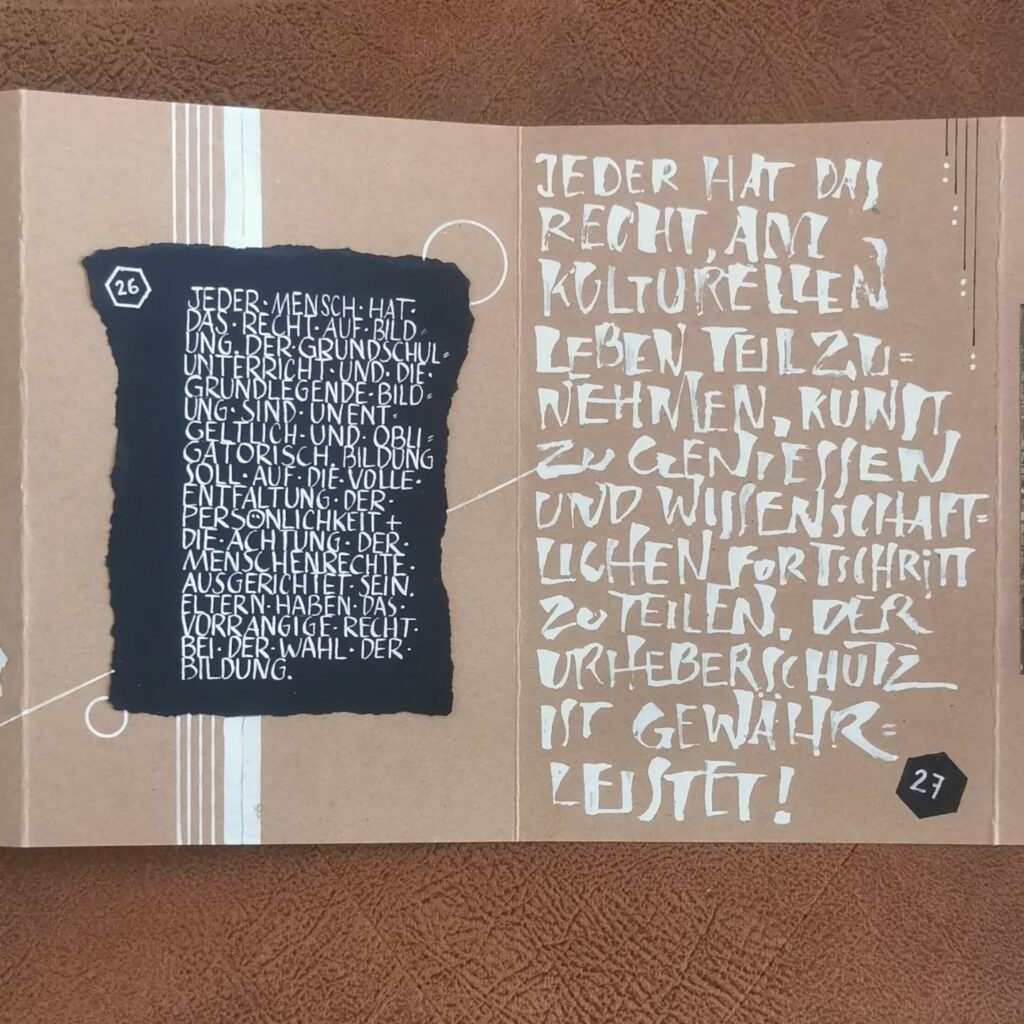 26
JEDER·MENSCH·HAT·
DAS·RECHT·AUF·BILD=
UNG. DER·GRUNDSCHUL=
UNTERRICHT·UND·DIE·
GRUNDLEGENDE·BILD=
UNG·SIND·UNENT=
GELTLICH·UND·OBLI=
GATORISCH. BILDUNG
SOLL·AUF·DIE·VOLLE·
ENTFALTUNG·DER·
PERSÖNLICHKEIT+
DIE·ACHTUNG·DER·
MENSCHENRECHTE·
AUSGERICHTET·SEIN.
ELTERN·HABEN·DAS·
VORRANGIGE·RECHT·
BEI·DER·WAHL·DER·
BILDUNG.
JEDER HAT DAS
RECHT, AM
KULTURELLEN
LEBEN TEILZU=
NEHMEN, KUNST
ZU GENIESSEN
UND WISSENSCHAFT=
LICHEN FORTSCHRITT
ZU TEILEN. DER
URHEBERSCHUTZ
IST GEWÄHR=
LEISTET!
27